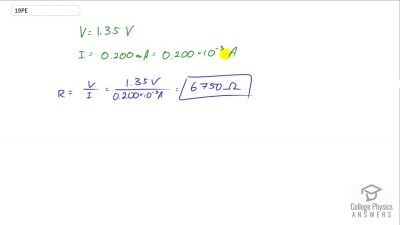 19PE
V = 1.35 V
I = 0.200 mA = 0.200 × 10⁻³ A
R = V/I = 1.35 V/0.200×10⁻³A = 6750 Ω
College Physics
ANSWERS